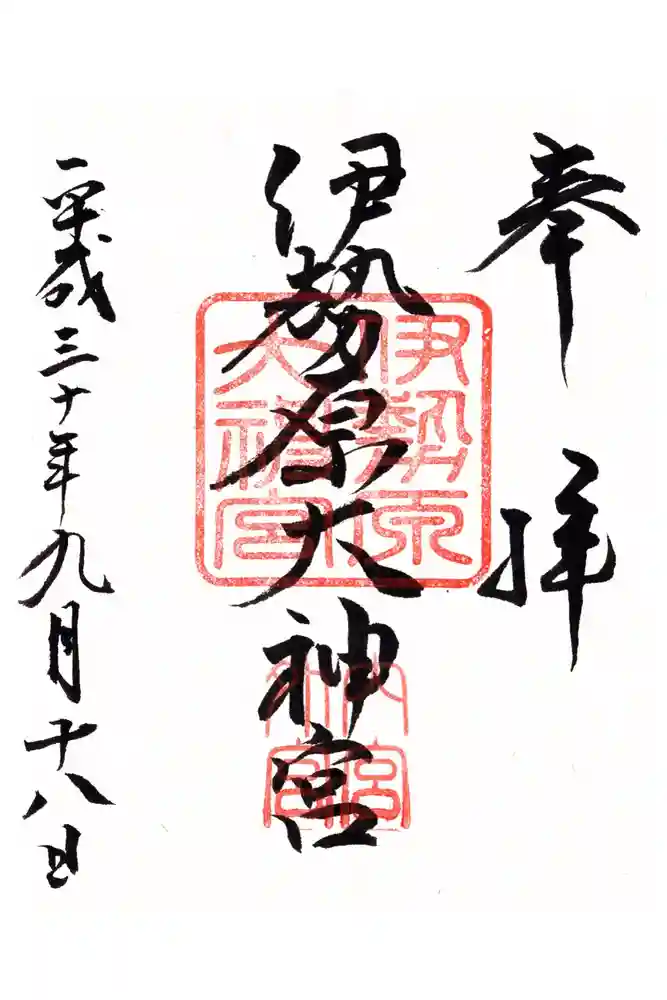 奉拝
伊勢原大神宮
伊勢原
大神宮
内宮
外宮
平成三十年九月十八日